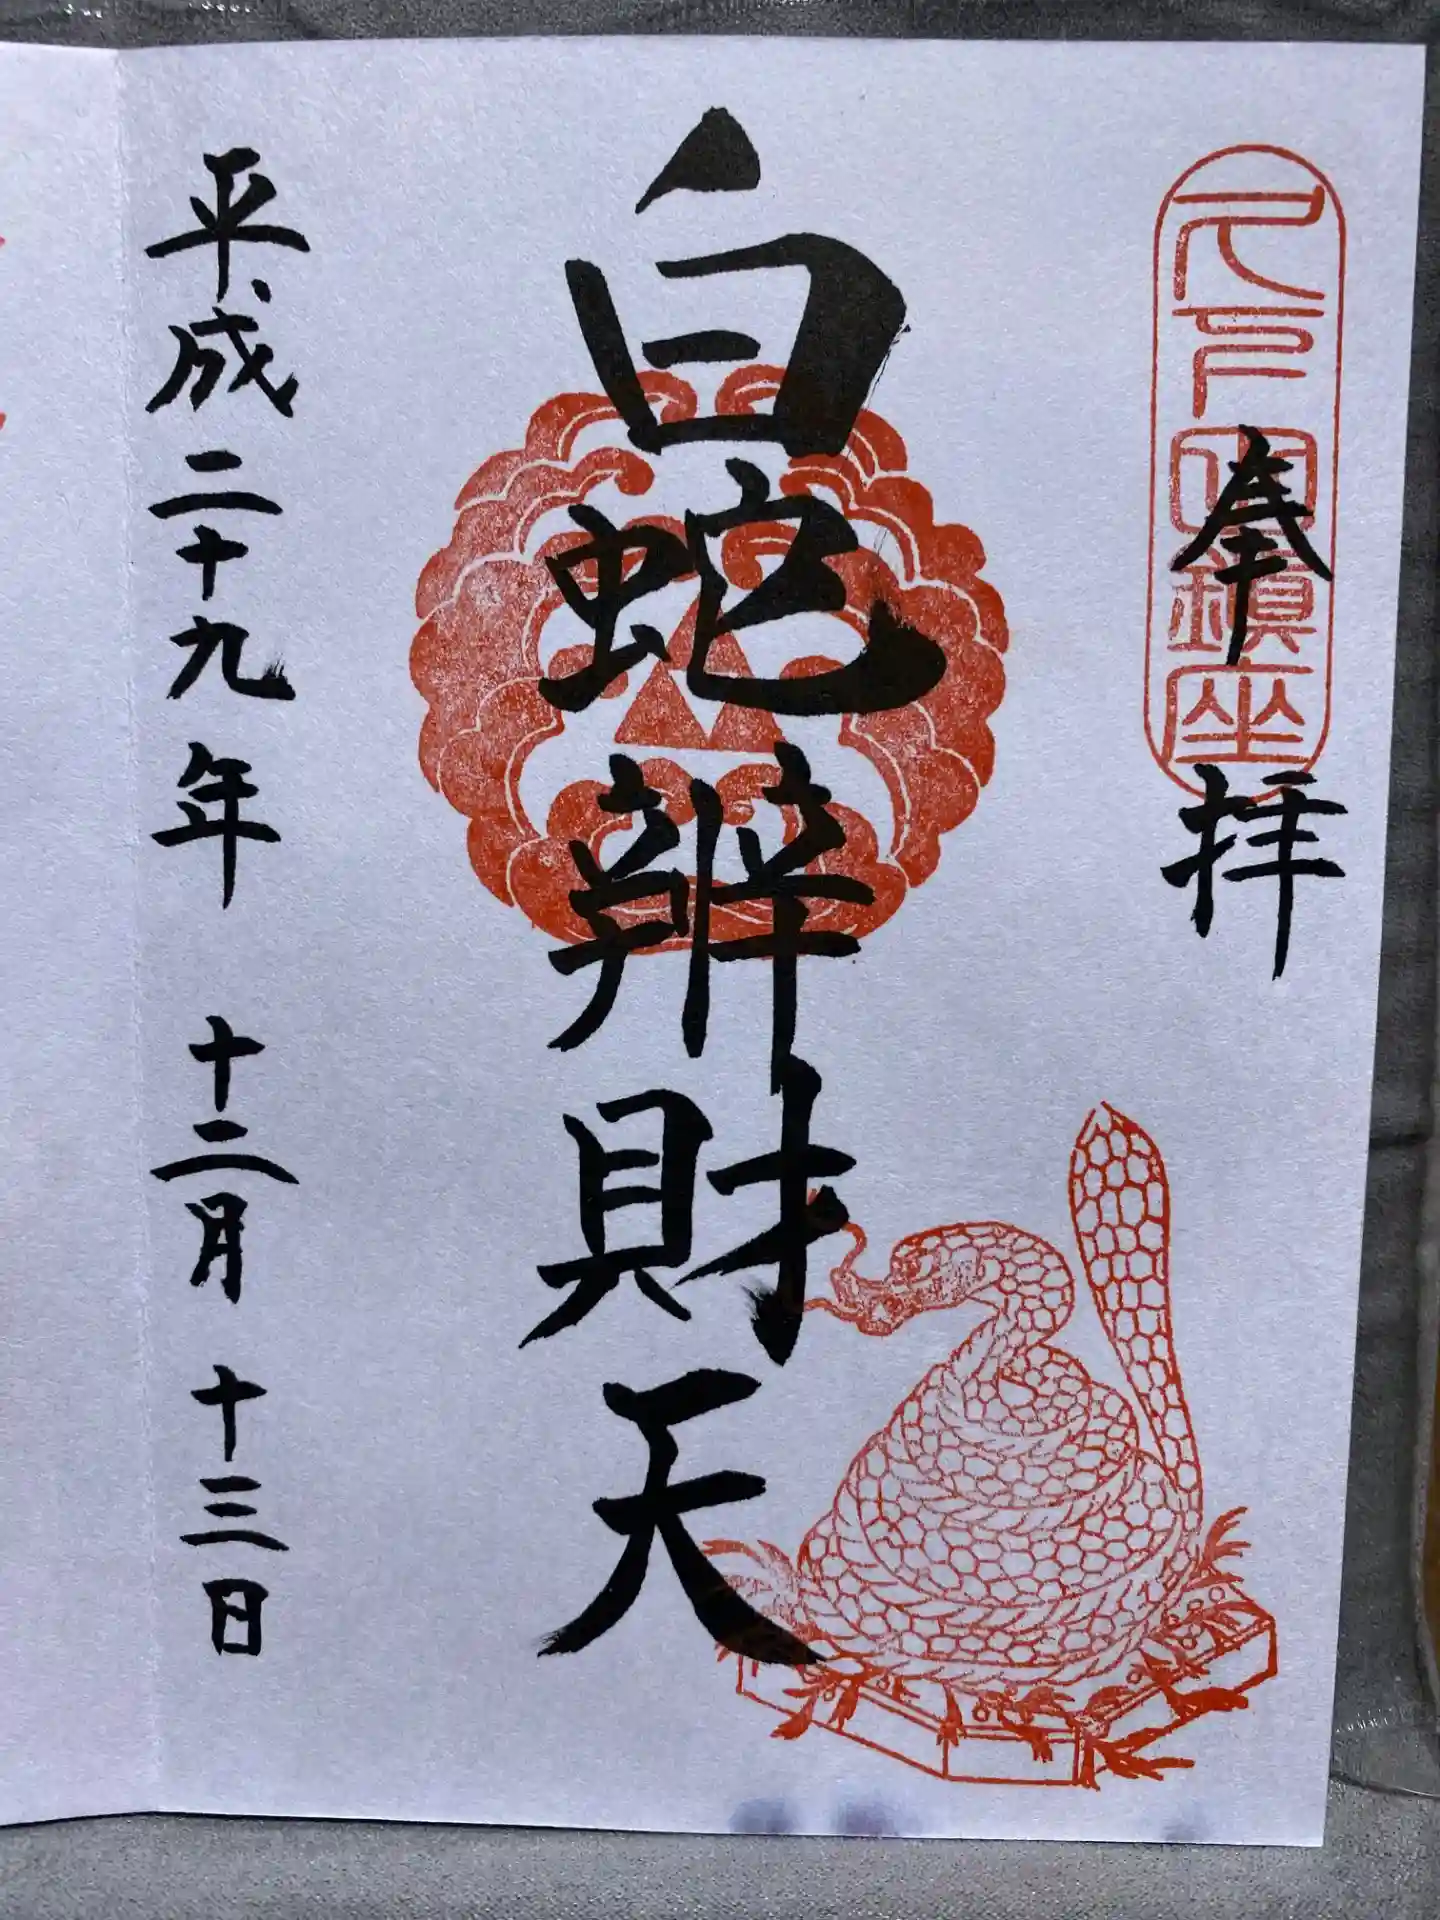 久下田鎮座
奉拝
白蛇辨財天
平成二十九年 十二月 十三日